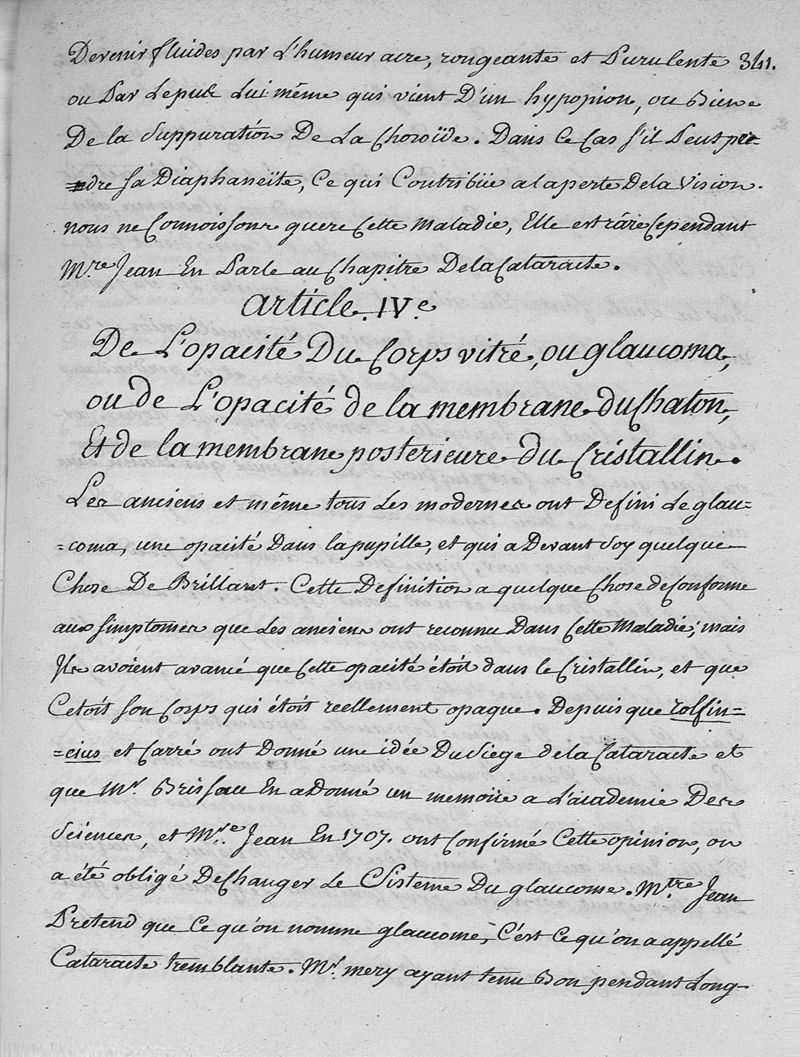 Devenir fluides par L'humeur acre, rongeante et Purulente 341.
ou Par Lepus Lui même qui vient D'un hypopion, ou Bien
De la Suppuration De La Choroïde. Dans Ce Cas s'il Peut per=
=dre sa Diaphaneïte, Ce qui Contribüe a la perte De la Vision.
nous ne Connoissons guere Cette Maladie, Elle est râre Cependant
M.re Jean En Parle au Chapitre De La Cataracte.
article. IV.e
De L'opacité Du Corps vitré, ou glaucoma,
ou de L'opacité de la membrane du Chaton,
Et de la membrane posterieure du Cristallin.
Les anciens et même tous Les modernes ont Defini Le glau=
=coma, une opacité Dans la pupille, et qui a Devant Soy quelque
Chose De Brillant. Cette Definition a quelque Chose de Conforme
aux simptomes que Les anciens ont reconnu Dans Cette Maladie; mais
Ils avoient avancé que Cette opacité étoit dans le Cristallin, et que
C'etoit son Corps qui étoit reellement opaque. Depuis que rolfin=
=cius et Carré ont Donné une idée Du Siege de la Cataracte et
que M.r Brisseau En a Donné un memoire a L'academie Des
Sciences, et M.re Jean En 1707. ont Confirmé Cette opinion, on
a été obligé De Changer Le Sisteme Du glaucome. M.tre Jean
Pretend que Ce qu'on nomme glaucome, C'est Ce qu'on a appellé
Cataracte tremblante. M.r mery ayant tenu Bon pendant Long=